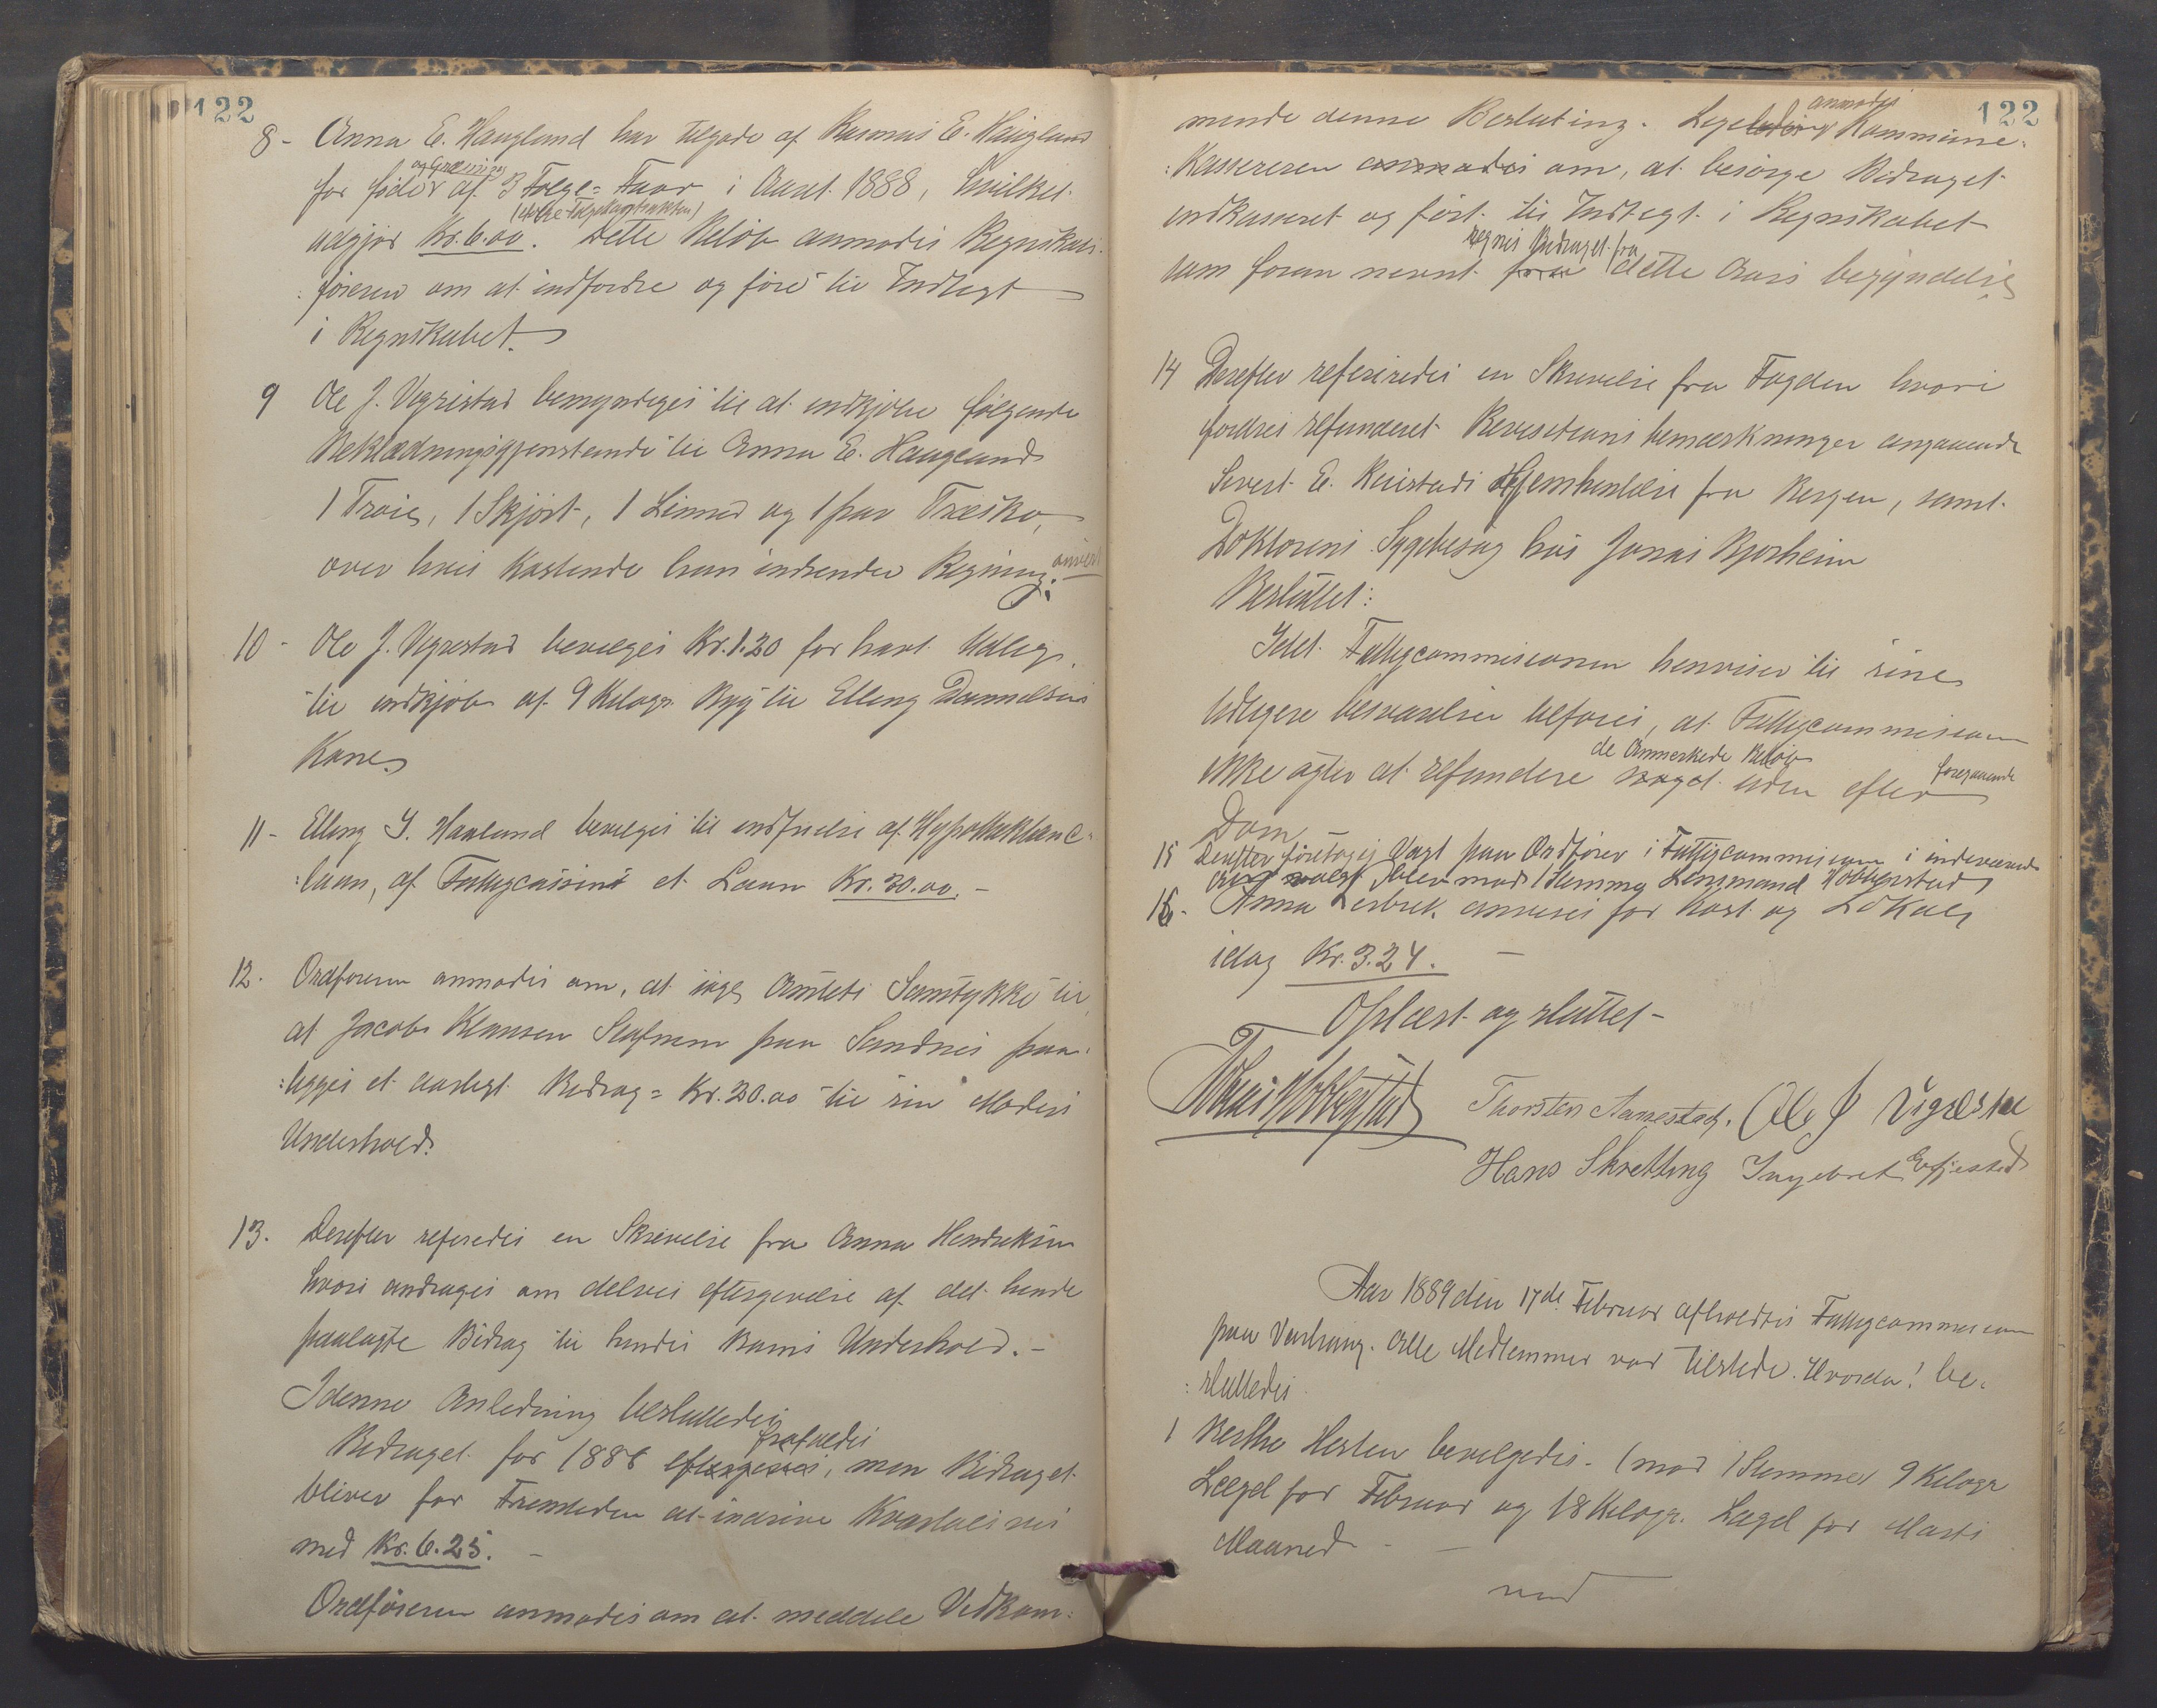 122
8 - Anna E. Haugland har tilgode af Rasmus E. Haugland
og Græsning
for föder af 3 Følge-Faar i Aaret 1888, hvilket
udgjør Kr. 6.00. Dette Beløb anmodes Regnskabs-
:føreren om at indfordre og føre til Indtægt
i Regnskabet.
9 Ole J. Vigrestad bemyndiges til at indkjøbe følgende
Beklædningsgjenstande til Anna E. Haugland
1 Trøie, 1 Skjørt, 1 Linned og 1 par Træsko,
over hvis Kostende han indsender Regning.
10 - Ole J. Vigrestad bevilges Kr. 1.20 for havt Udlæg
til indkjøb af 9 Kilogr. Byg til Elling Danielsens
Kone
11 - Elling S. Haaland bevilges til indfrielse af Hypothekbanc-
:laan, af Fattigcassens et Laan Kr. 30.00. -
12. Ordføreren anmodes om, at søge Amtets Samtykke til
at Jacob Klausen Stafnem paa Sandnes paa-
:lægges et aarligt Bidrag = Kr. 20.00 til sin Moders
Underhold.
13. Derefter refereredes en Skrivelse fra Anna Hendriksen
hvori andrages om delvis eftergivelse af det hende
paalagte Bidrag til hendes Barns Underhold. -
I denne Anledning besluttedes
frafaldes
Bidraget for 1888 eftergives, men Bidraget
bliver for Fremtiden at inddrive Kvartalsvis
med Kr. 6.25. -
Ordføreren anmodes om at meddele Vedkom-
122
anmodes
mende denne Beslutning. Ligeledes Kommune-
:Kassereren anmodes om, at besørge Bidraget
indkasseret og ført til Indtægt i Regnskabet
regnes Bidraget fra
som foran nævnt fra dette Aars begyndelse
14 Derefter refereredes en Skrivelse fra Fogden hvori
fordres refunderet Revisions bemærkninger angaaende
Sivert E. Hjemsendelse fra Bergen, samt
Doktorens Sygebesøg hos Jonas Bjorheim
Besluttet:
Idet Fattigcommissionen henviser til sine
tidligere besvarelser tilføies, at Fattigcommissionen
de Anmerkede Beløb
foregaaende
ikke agter at refundere noget uden efter
Dom
15 Derefter foretoges Valg paa Ordfører i Fattigcommissionen i indeværende
Aar valgt blev mod 1 Stemme Lensmand Hobberstad
16. Anna anvises for Kost og Lokale
idag Kr. 3.24. -
Oplæst og sluttet -
Hobberstad
Thorsten Aanestad. Ole J Vigrestad
Hans Skretting Ingebret Evjestad
Aar 1889 den 17de Februar afholdtes Fattigcommission
paa Varhaug. Alle Medlemmer var tilstede. Hvorda! be-
:sluttedes
1 Berthe bevilgedes - (mod 1 Stemme) 9 Kilogr
for Februar og 18 Kilogr. for Marts
Maaned - -